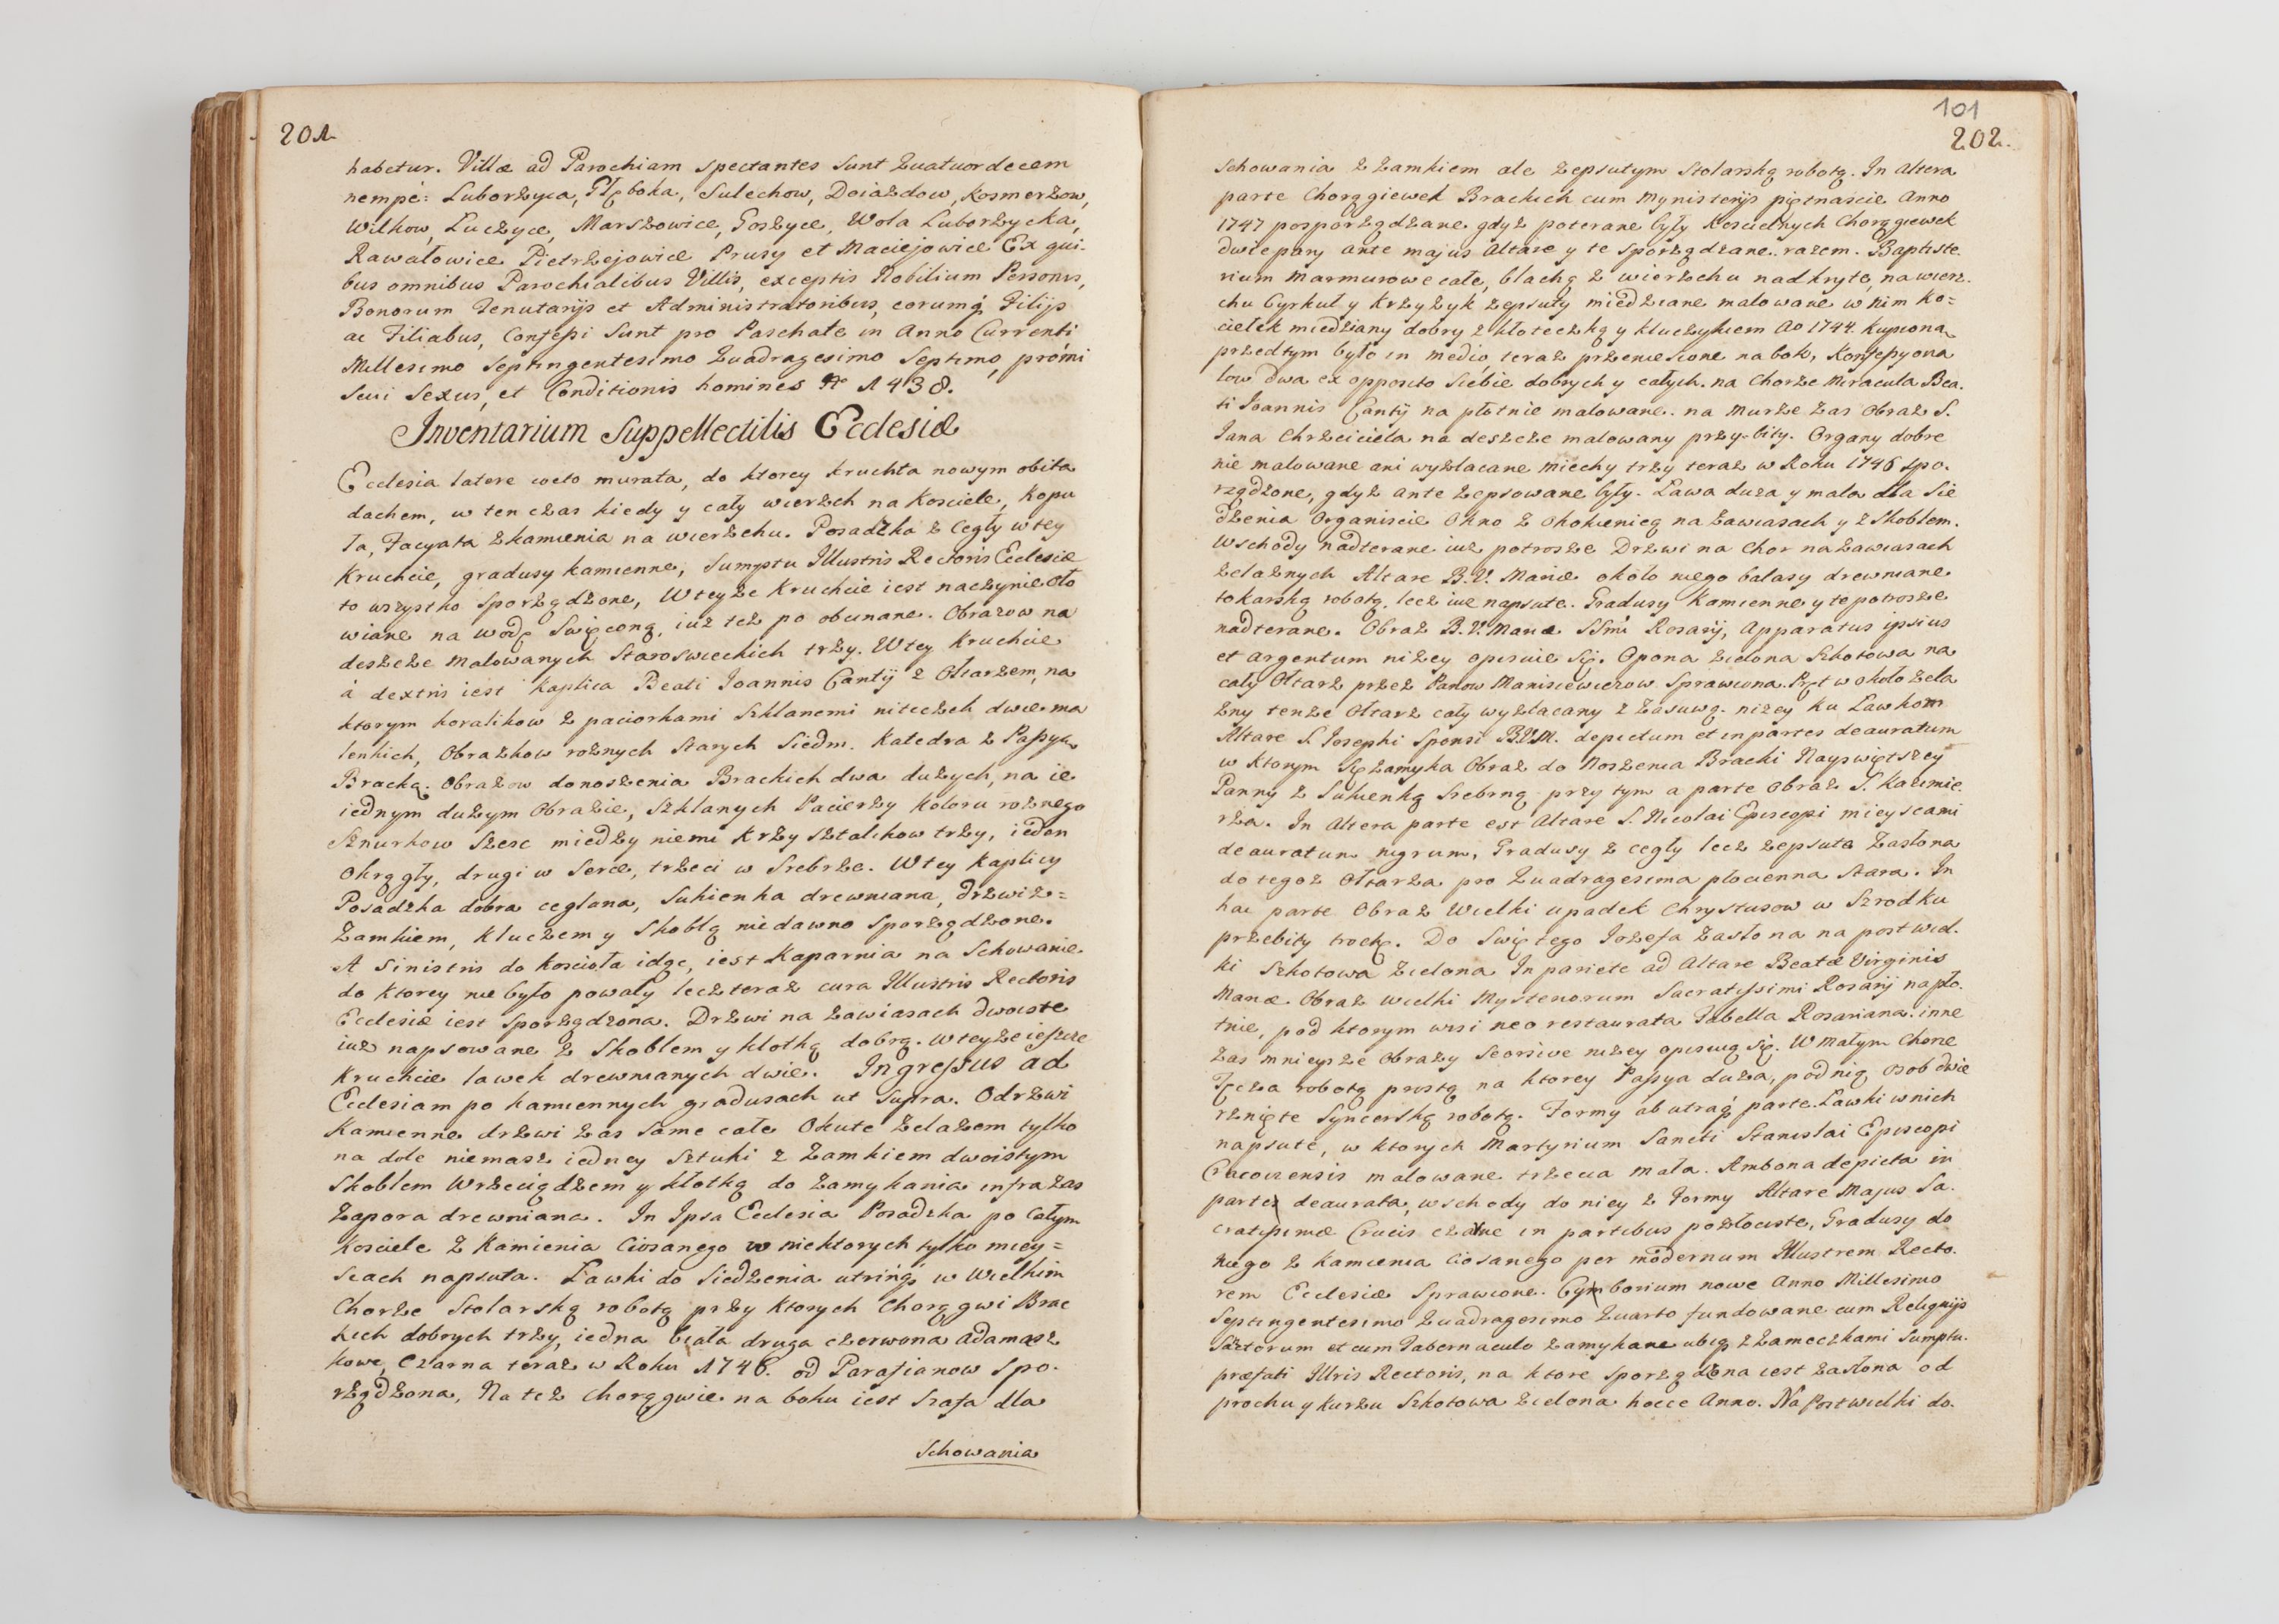 201
habetur. Villæ ad Parochiam spectantes sunt Quatuordecem
nempè: Luborzyca, Głęboka, Sulechow, Doiazdow, Kosmerzow,
Wilkow, Luczyce, Marszowice, Goszyce, Wola Luborzycka,
Rawałowice Pietrzejowice Prusy et Maciejowice Ex qui-
bus omnibus Parochialibus Villis, exceptis Nobilium Personis,
Bonorum Tenutarijs et Administratoribus, eorumq́ Filijs
ac Filiabus, Confessi sunt pro Paschate in Anno Currenti
Millesimo Septingentesimo Quadragesimo Septimo, promi
scui Sexus, et Conditionis homines No 1438.
Inventarium Suppellectilis Ecclesiæ
Ecclesia latere cocto murata, do ktorey kruchta nowym obita
dachem, w ten czas kiedy y cały wierzch na Kosciele, Kopu
ła, Facyata z kamienia na wierzchu. Posadzka z Cegły w tey
Kruchcie, gradusy kamienne, Sumptu Illustris Rectoris Ecclesiæ
to wszystko sporządzone, W teyże Kruchcie iest naczynie Oło
wiane na wodę Swięconą, iuz tez po obcinane. Obrazow na
deszcze malowanych Staroswieckich trzy. W tey kruchcie
à dextris iest Kaplica Beati Joannis Cantij z Ołtarzem, na
ktorym koralikow z paciorkami Szklanemi niteczek dwie ma
lenkich, Obrazkow roznych Starych Siedm. Katedra z Passyą
Bracką. Obrazow do noszenia Brackich dwa duzych, na ie
iednym duzym Obrazie, Szklanych Pacierzy koloru roznego
Sznurkow Szesc miedzy niemi krzysztalikow trzy, ieden
Okrągły, drugi w Serce, trzeci w Srebrze. W tey Kaplicy
Posadzka dobra ceglana, Sukienka drewniana, drzwi z=
Zamkiem, kluczem y Skoblą niedawno sporządzone.
A Sinistris do kosciola idąc, iest Kaparnia na Schowanie
do ktorey nie było powały lecz teraz cura Illustris Rectoris
Ecclesiæ iest sporządzona. Drzwi na zawiasach dwoiste
iuz napsowane z Skoblem y klotką dobrą. W teyze ieszcze
Kruchcie lawek drewnianych dwie. Ingressus ad
Ecclesiam po kamiennych gradusach ut supra. Odrzwi
Kamienne drzwi zas same całe Okute zelazem tylko
na dole niemasz iedney Sztuki z Zamkiem dwoistym
Skoblem Wrzeciądzem y kłotką do zamykania infra zas
zapora drewniana. In Ipsa Ecclesia Posadzka po całym
Kosciele z kamienia Ciosanego w niektorych tylko miey=
scach napsuta. Ławki do Siedzenia utrinq́ w Wielkim
Chorze Stolarską robotą przy ktorych Chorągwi Brac
kich dobrych trzy, iedna biała druga czerwona adamasz
kowe, Czarna teraz w Roku 1746. od Parafianow spo-
rządzona, Na tez chorągwie na boku iest Szafa dla
Schowania
101
202.
Schowania z zamkiem ale zepsutym Stolarską robotą. In altera
parte Chorągiewek Brackich cum Mynisterijs piętnascie Anno
1747 posporządzane gdyz poterane były Koscielnych Chorągiewek
dwie pary ante majus Altare y te sporządzane razem. Baptiste
rium Marmurowe całe, blachą z wierzchu nadkryte, na wierz-
chu Cyrkuł y krzyzyk zepsuty miedziane malowane w nim Ko=
ciełek miedziany dobry z kłoteczką y kluczykiem Ao 1744. Kupiona
przedtym było in medio, teraz przeniesione na bok, Konfessyona
low dwa ex opposito siebie dobrych y całych. na Chorze Miracula Bea-
ti Joannis Cantij na płotnie malowane. na Murze zas Obraz S.
Jana Chrzciciela na deszcze malowany przy-bity. Organy dobre
nie malowane ani wyzlacane miechy trzy teraz w Roku 1746 spo-
rządzone, gdyz ante zepsowane były. Ława duza y mala dla Sie
dzenia Organiscie Okno z okokienicą na zawiasach y z Skoblem.
Wschody nadterane iuz potrosze Drzwi na Chor na zawiasach
zelaznych Altare B.V. Mariæ około niego balasy drewniane
tokarską robotą, lecz iuz napsute. Gradusy Kamienne y te potrosze
nadterane. Obraz B.V. Mariæ SSmi Rosarij, Apparatus ipsius
et argentum nizey opisuie Się. Opona zielona Szkotowa na
cały Ołtarz przez Panow Manisiewiczow Sprawiona. Pręt w około zela
zny tenze Ołtarz cały wyzlacany z zasuwą. nizey ku Ławkom
Altare S. Josephi Sponsi B.V.M. depictum et in partes deauratum
w ktorym Się zamyka Obraz do Noszenia Bracki Nayswiętszey
Panny z Sukienką Srebrną przy tym a parte Obraz S. Kazimie
rza. In Altera parte est Altare S. Nicolai Episcopi mieyscami
deauratum nigrum, Gradusy z cegły lecz zepsuta Zasłona
do tegoz Ołtarza pro Quadragesima płocienna Stara. In
hac parte Obraz Wielki upadek Chrystusow w Szrodku
przebity trochę. Do Swiętego Jozefa Zasłona na post wiel-
ki Szkotowa Zielona In pariete ad Altare Beatæ Virginis
Mariæ Obraz wielki Mysteriorum Sacratissimi Rosarij na pło-
tnie, pod ktorym wisi neo restaurata Tabella Rosariana. inne
zas mnieysze Obrazy Seorsive nizey opisuią Się. W Małym Chorze
Tęcza robotą prostą na ktorey Passya duza, pod nią osob dwie
rznięte Syncerską robotą. Formy ab utraq́ parte. Lawki w nich
napsute, w ktorych Martyrium Sancti Stanislai Episcopi
Cracoviensis malowane trzecia mała. Ambona depicta in
parte deaurata, wschody do niey z Formy Altare Majus Sa-
cratissimæ Crucis czarne in partibus pozłociste, Gradusy do
niego z kamienia Ciosanego per modernum Illustrem Recto-
rem Ecclesiæ Sprawione. Cymborium nowe Anno Millesimo
Septingentesimo Quadragesimo Quarto fundowane cum Reliquijs
Sanctorum et cum Tabernaculo zamykane ubiq́ z zameczkami Sumptu
præfati Illris Rectoris, na ktore sporządzona iest zasłona od
prochu y kurzu Szkotowa zielona hocce Anno. Na Post wielki do.